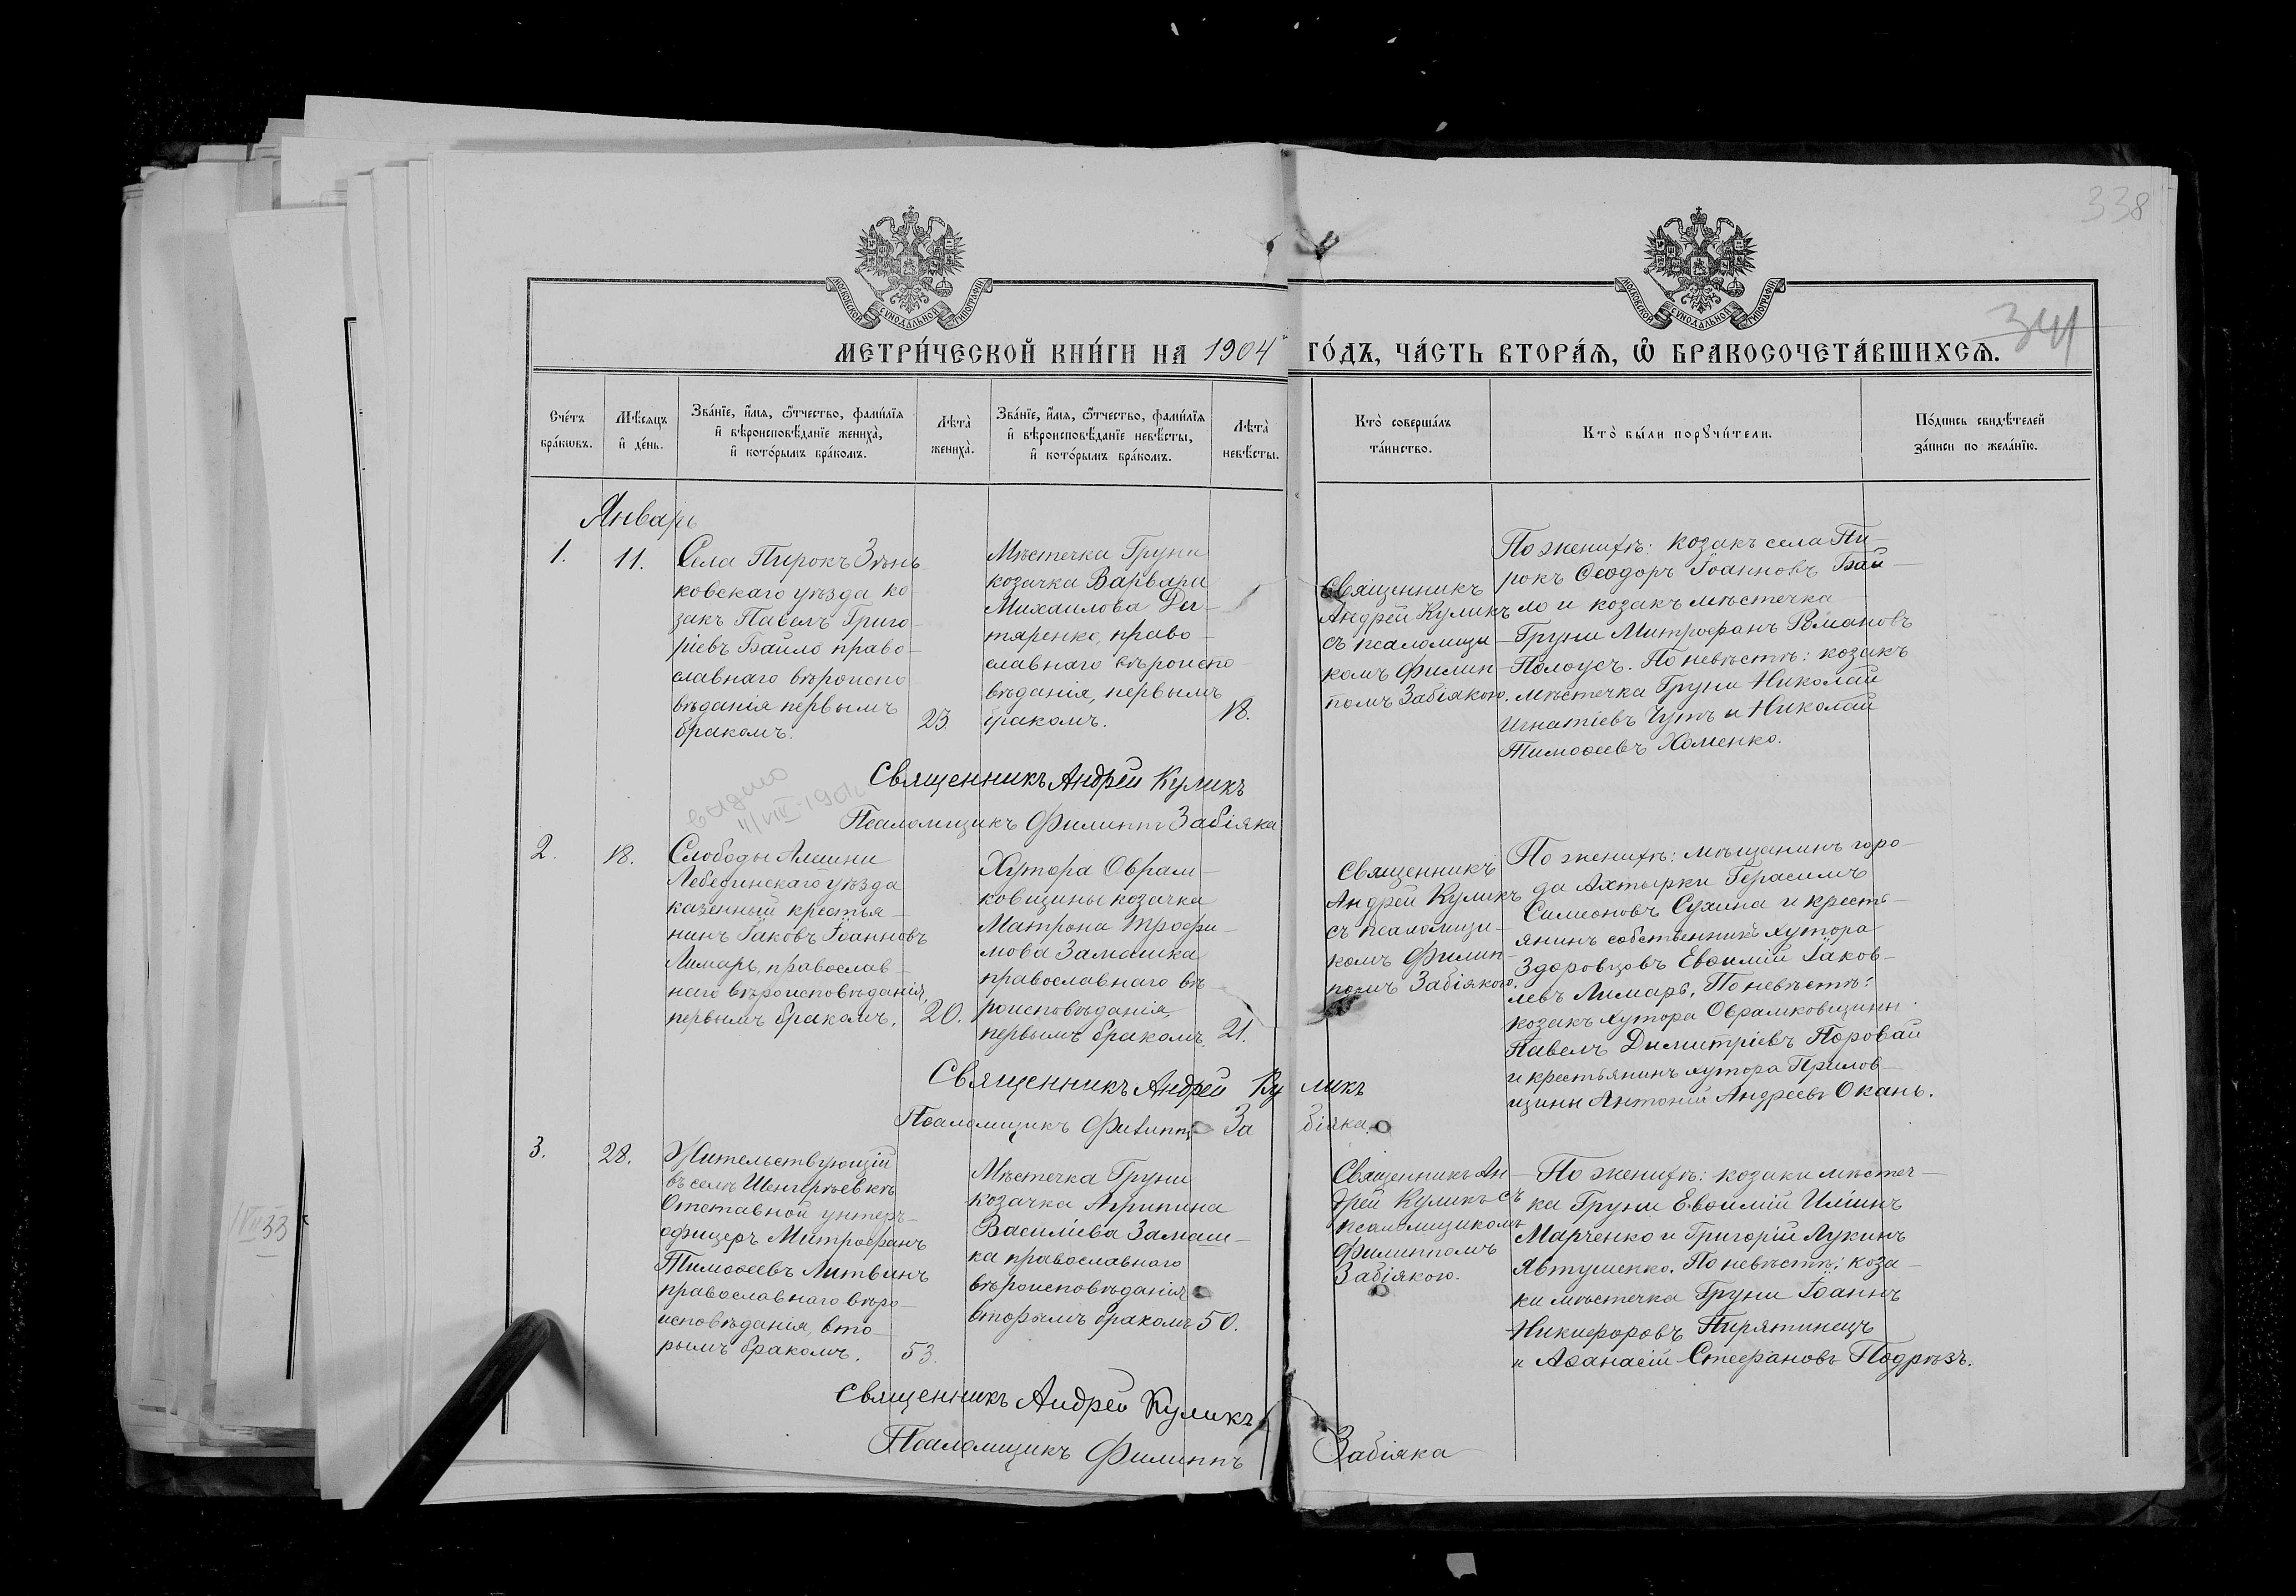 338
341
МОСКОВСКОЙ СѴНОДАЛЬНОЙ ТИПОГРАФІИ
МОСКОВСКОЙ СѴНОДАЛЬНОЙ ТИПОГРАФІИ
МЕТРИ́ЧЕСКОЙ КНИ́ГИ НА 1904 ГО́ДЪ, ЧА́СТЬ ВТОРА́Ѧ, Ѽ БРАКОСОЧЕТА́ВШИХСѦ.
Сче́тъ
бра́кѡвъ.
Мѣ́сѧцъ
и҆ де́нь.
Зва́нїе, и҆́мѧ, ѻ҆́тчество, фами́лїѧ
и҆ вѣроисповѣ́данїе жениха̀,
и҆ кото́рымъ бра́комъ.
Лѣта̀
жениха̀.
Зва́нїе, и҆́мѧ, ѻ҆́тчество, фами́лїѧ
и҆ вѣроисповѣ́данїе невѣ́сты,
и҆ кото́рымъ бра́комъ.
Лѣта̀
невѣ́сты.
Кто̀ соверша́лъ
та́инство.
Кто̀ бы́ли порꙋчи́тели.
По́дпись свидѣ́телей
за́писи по жела́нїю.
Январь
1.
11.
Села Пирокъ Зѣнь
ковскаго уѣзда ко
закъ Павелъ Григо-
ріевъ Байло право-
славнаго вѣроиспо
вѣданія первымъ
бракомъ.
23.
Мѣстечка Груни
козачка Варвара
Михаилова Де-
тяренко, право-
славнаго вѣроиспо-
вѣданія, первымъ
бракомъ.
18.
Священникъ
Андрей Куликъ
съ псаломщи-
комъ Филип-
помъ Забіякою.
По женихѣ: козакъ села Пи-
рокъ Ѳеодоръ Іоанновъ Бай-
ло и козакъ мѣстечка
Груни Митрофанъ Романовъ
Полоусъ. По невѣстѣ: козакъ
мѣстечка Груни Николай
Игнатіевъ Чутъ и Николай
Тимоѳеевъ Хоменко.
Священникъ Андрей Куликъ
Псаломщикъ Филиппъ Забіяка
2.
18.
Слободы Алешни
Лебединскаго уѣзда
казенный крестья-
нинъ Іаковъ Іоанновъ
Лимарь, православ-
наго вѣроисповѣданія,
первымъ бракомъ.
20.
Хутора Оврам-
ковщины козачка
Матрона Трофи-
мова Замашка
православнаго вѣ
роисповѣданія,
первымъ бракомъ.
21.
Священникъ
Андрей Куликъ
съ псаломщи-
комъ Филип-
помъ Забіякою.
По женихѣ: мѣщанинъ горо-
да Ахтырки Герасимъ
Симеоновъ Сухина и кресть-
янинъ собственникъ хутора
Здоровцовъ Евѳимій Іаков-
левъ Лимарь. По невѣстѣ:
козакъ хутора Оврамковщины
Павелъ Димитріевъ Поровай
и крестьянинъ хутора Прилов-
щины Антоній Андреевъ Окань.
Священникъ Андрей Куликъ
Псаломщикъ Филиппъ Забіяка.
3.
28.
Жительствующій
въ селѣ Шенгерѣевкѣ
Отставной унтеръ-
офицеръ Митрофанъ
Тимоѳеевъ Литвинъ
православнаго вѣро-
исповѣданія, вто-
рымъ бракомъ.
53.
Мѣстечка Груни
козачка Агрипина
Василіева Замаш-
ка православнаго
вѣроисповѣданія
вторымъ бракомъ
50.
Священникъ Ан-
дрей Куликъ съ
псаломщикомъ
Филиппомъ
Забіякою.
По женихѣ: козаки мѣстеч-
ка Груни Евѳимій Иліинъ
Марченко и Григорій Лукинъ
Явтушенко. По невѣстѣ: коза-
ки мѣстечка Груни Іоаннъ
Никифоровъ Пирятинецъ
и Аѳанасій Стефановъ Подрѣзъ.
Священникъ Андрей Куликъ
Псаломщикъ Филиппъ Забіяка